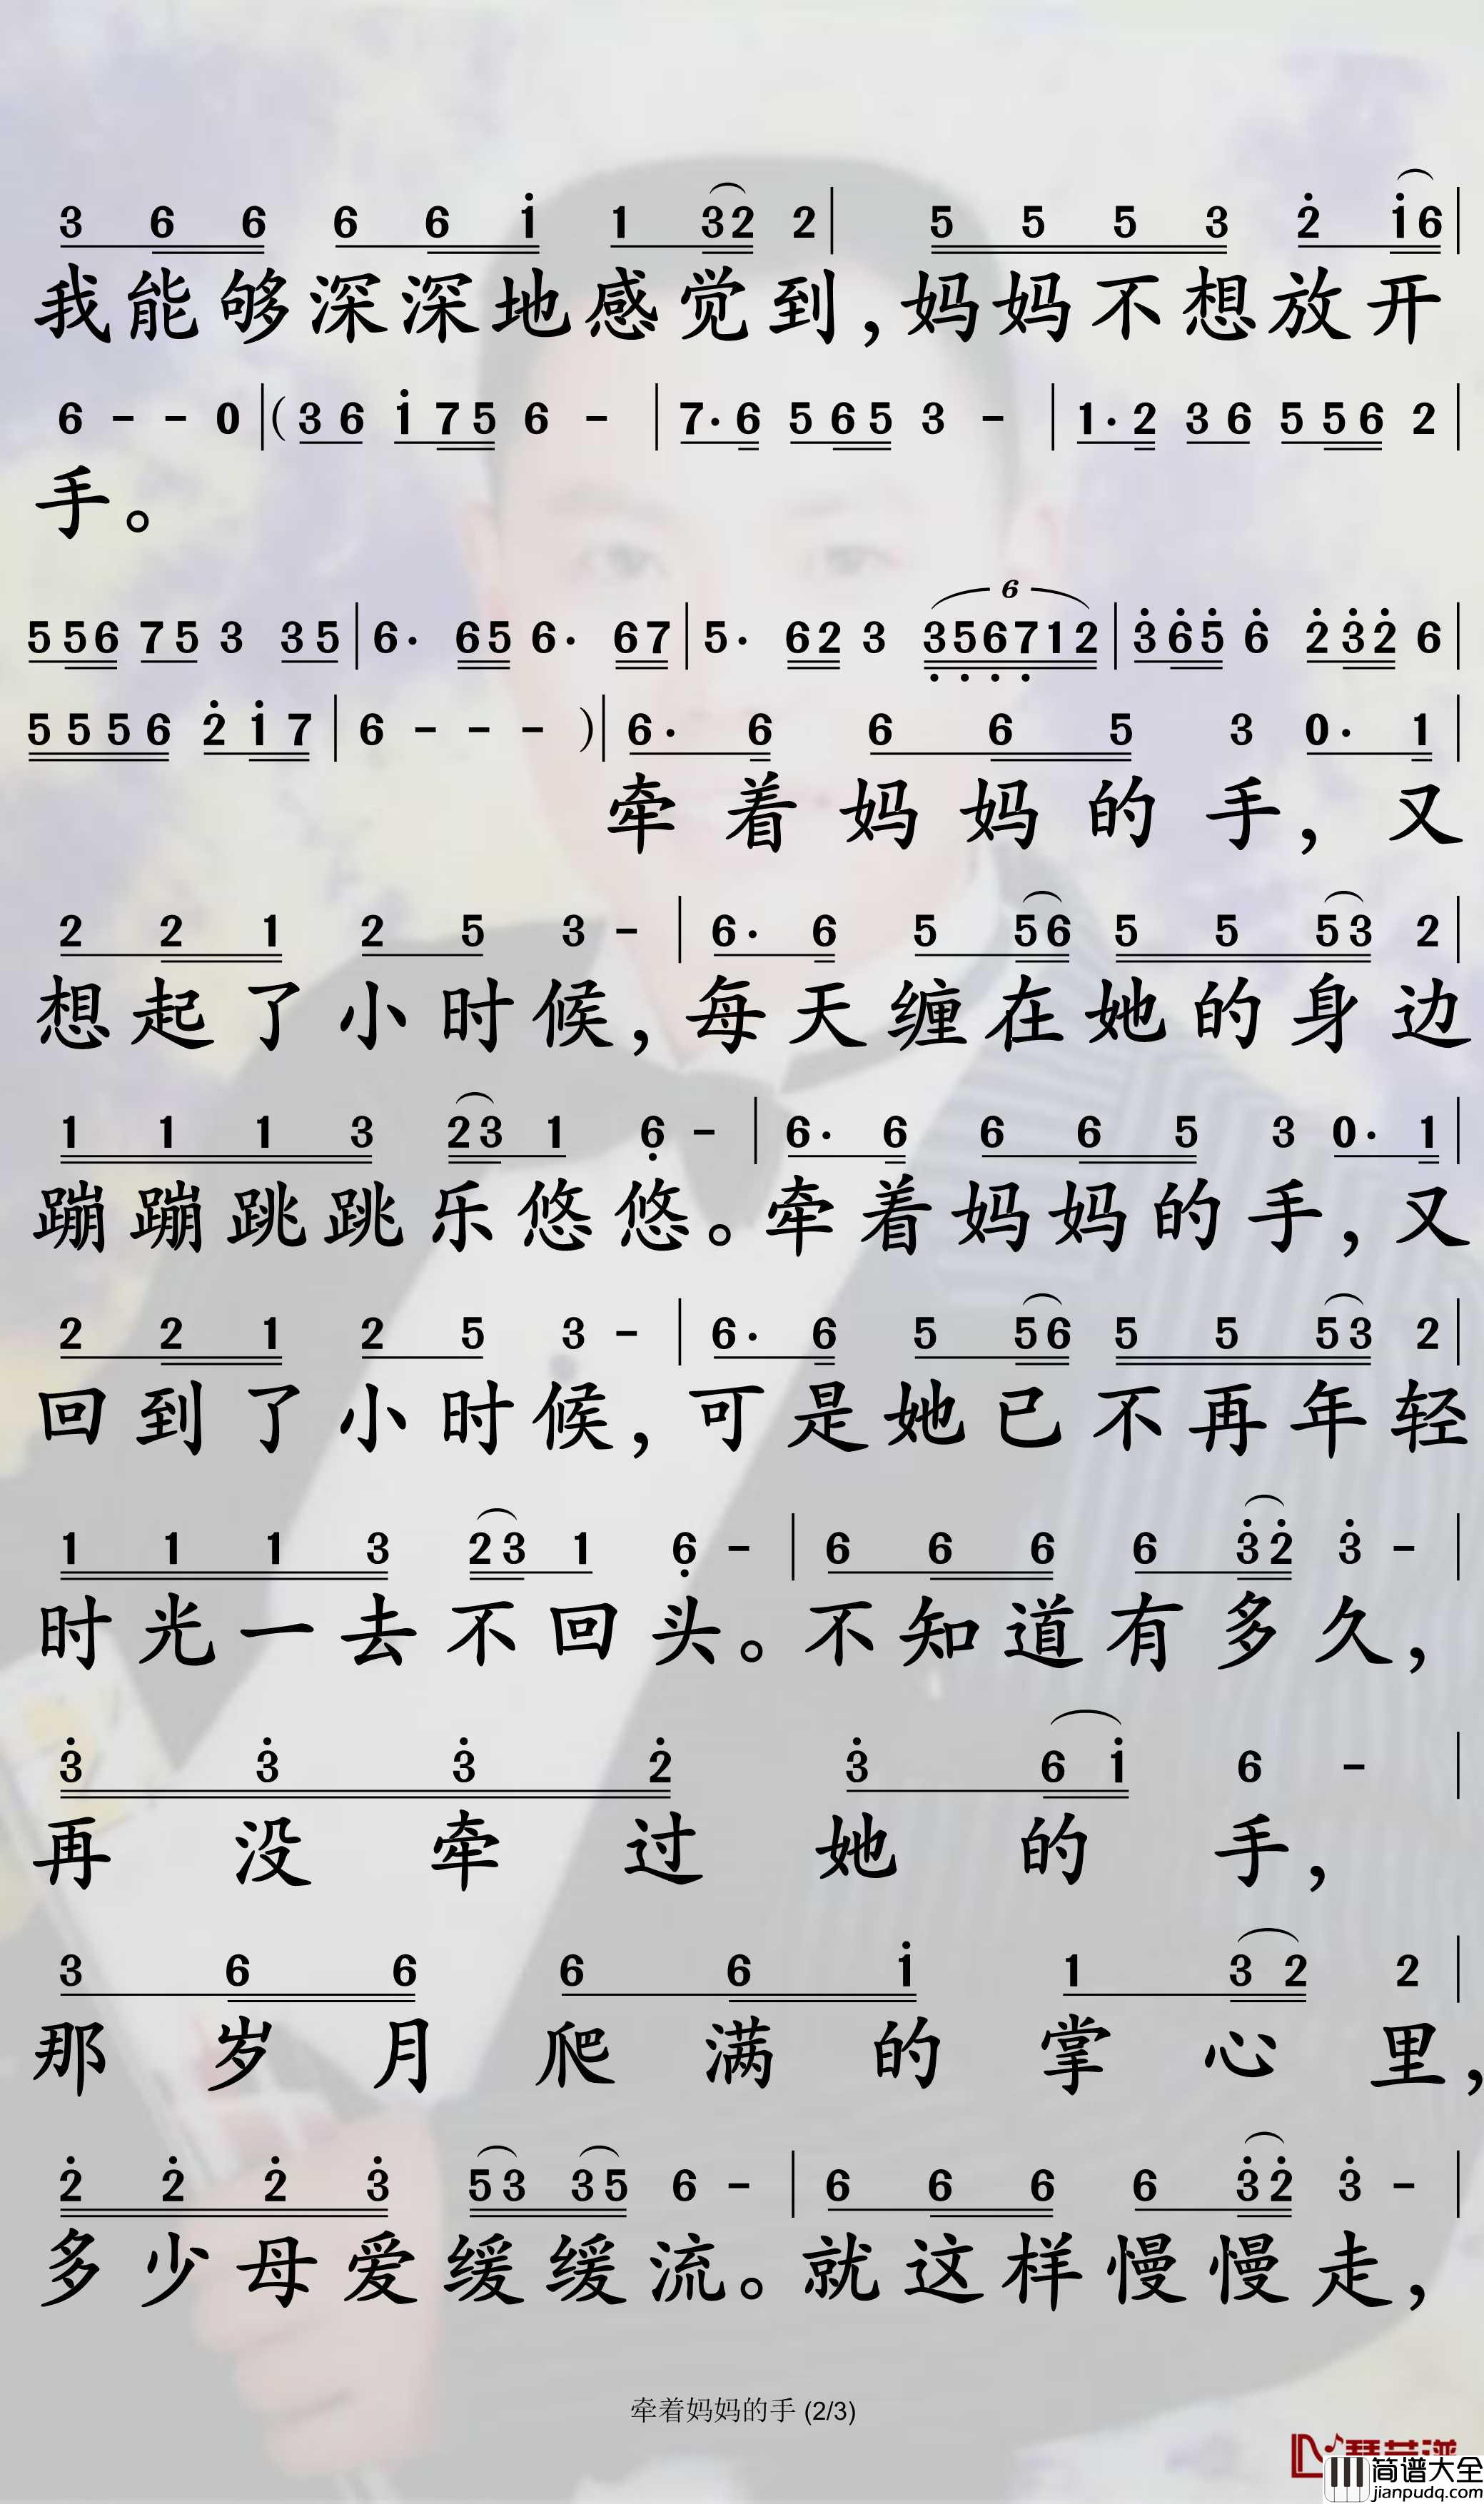 3 6 6 6 6 i 1 32 2 | 5 5 5 3 2 i6 |
我能够深深地感觉到,妈妈不想放开
6 - - 0 |(36 i75 6 - | 7·6 565 3 - | 1·2 36 556 2 |
手。
556 75 3 35 | 6· 65 6· 67 | 5· 62 3 356712 | 365 6 232 6 |
6
5556 2i7 | 6 - - - )| 6· 6 6 6 5 3 0· 1 |
牵着妈妈的手,又
2 2 1 2 5 3 - | 6· 6 5 56 5 5 53 2 |
想起了小时候,每天缠在她的身边
1 1 1 3 23 1 6 - | 6· 6 6 6 5 3 0· 1 |
蹦蹦跳跳乐悠悠。牵着妈妈的手,又
2 2 1 2 5 3 - | 6· 6 5 56 5 5 53 2 |
回到了小时候,可是她已不再年轻
1 1 1 3 23 1 6 - | 6 6 6 6 32 3 - |
时光一去不回头。不知道有多久,
3 3 3 2 3 6 i 6 - |
再没牵过她的手,
3 6 6 6 6 i 1 3 2 2 |
那岁月爬满的掌心里,
2 2 2 3 53 35 6 - | 6 6 6 6 32 3 - |
多少母爱缓缓流。就这样慢慢走,
牵着妈妈的手 (2/3)
简谱大全
jianpudq.com